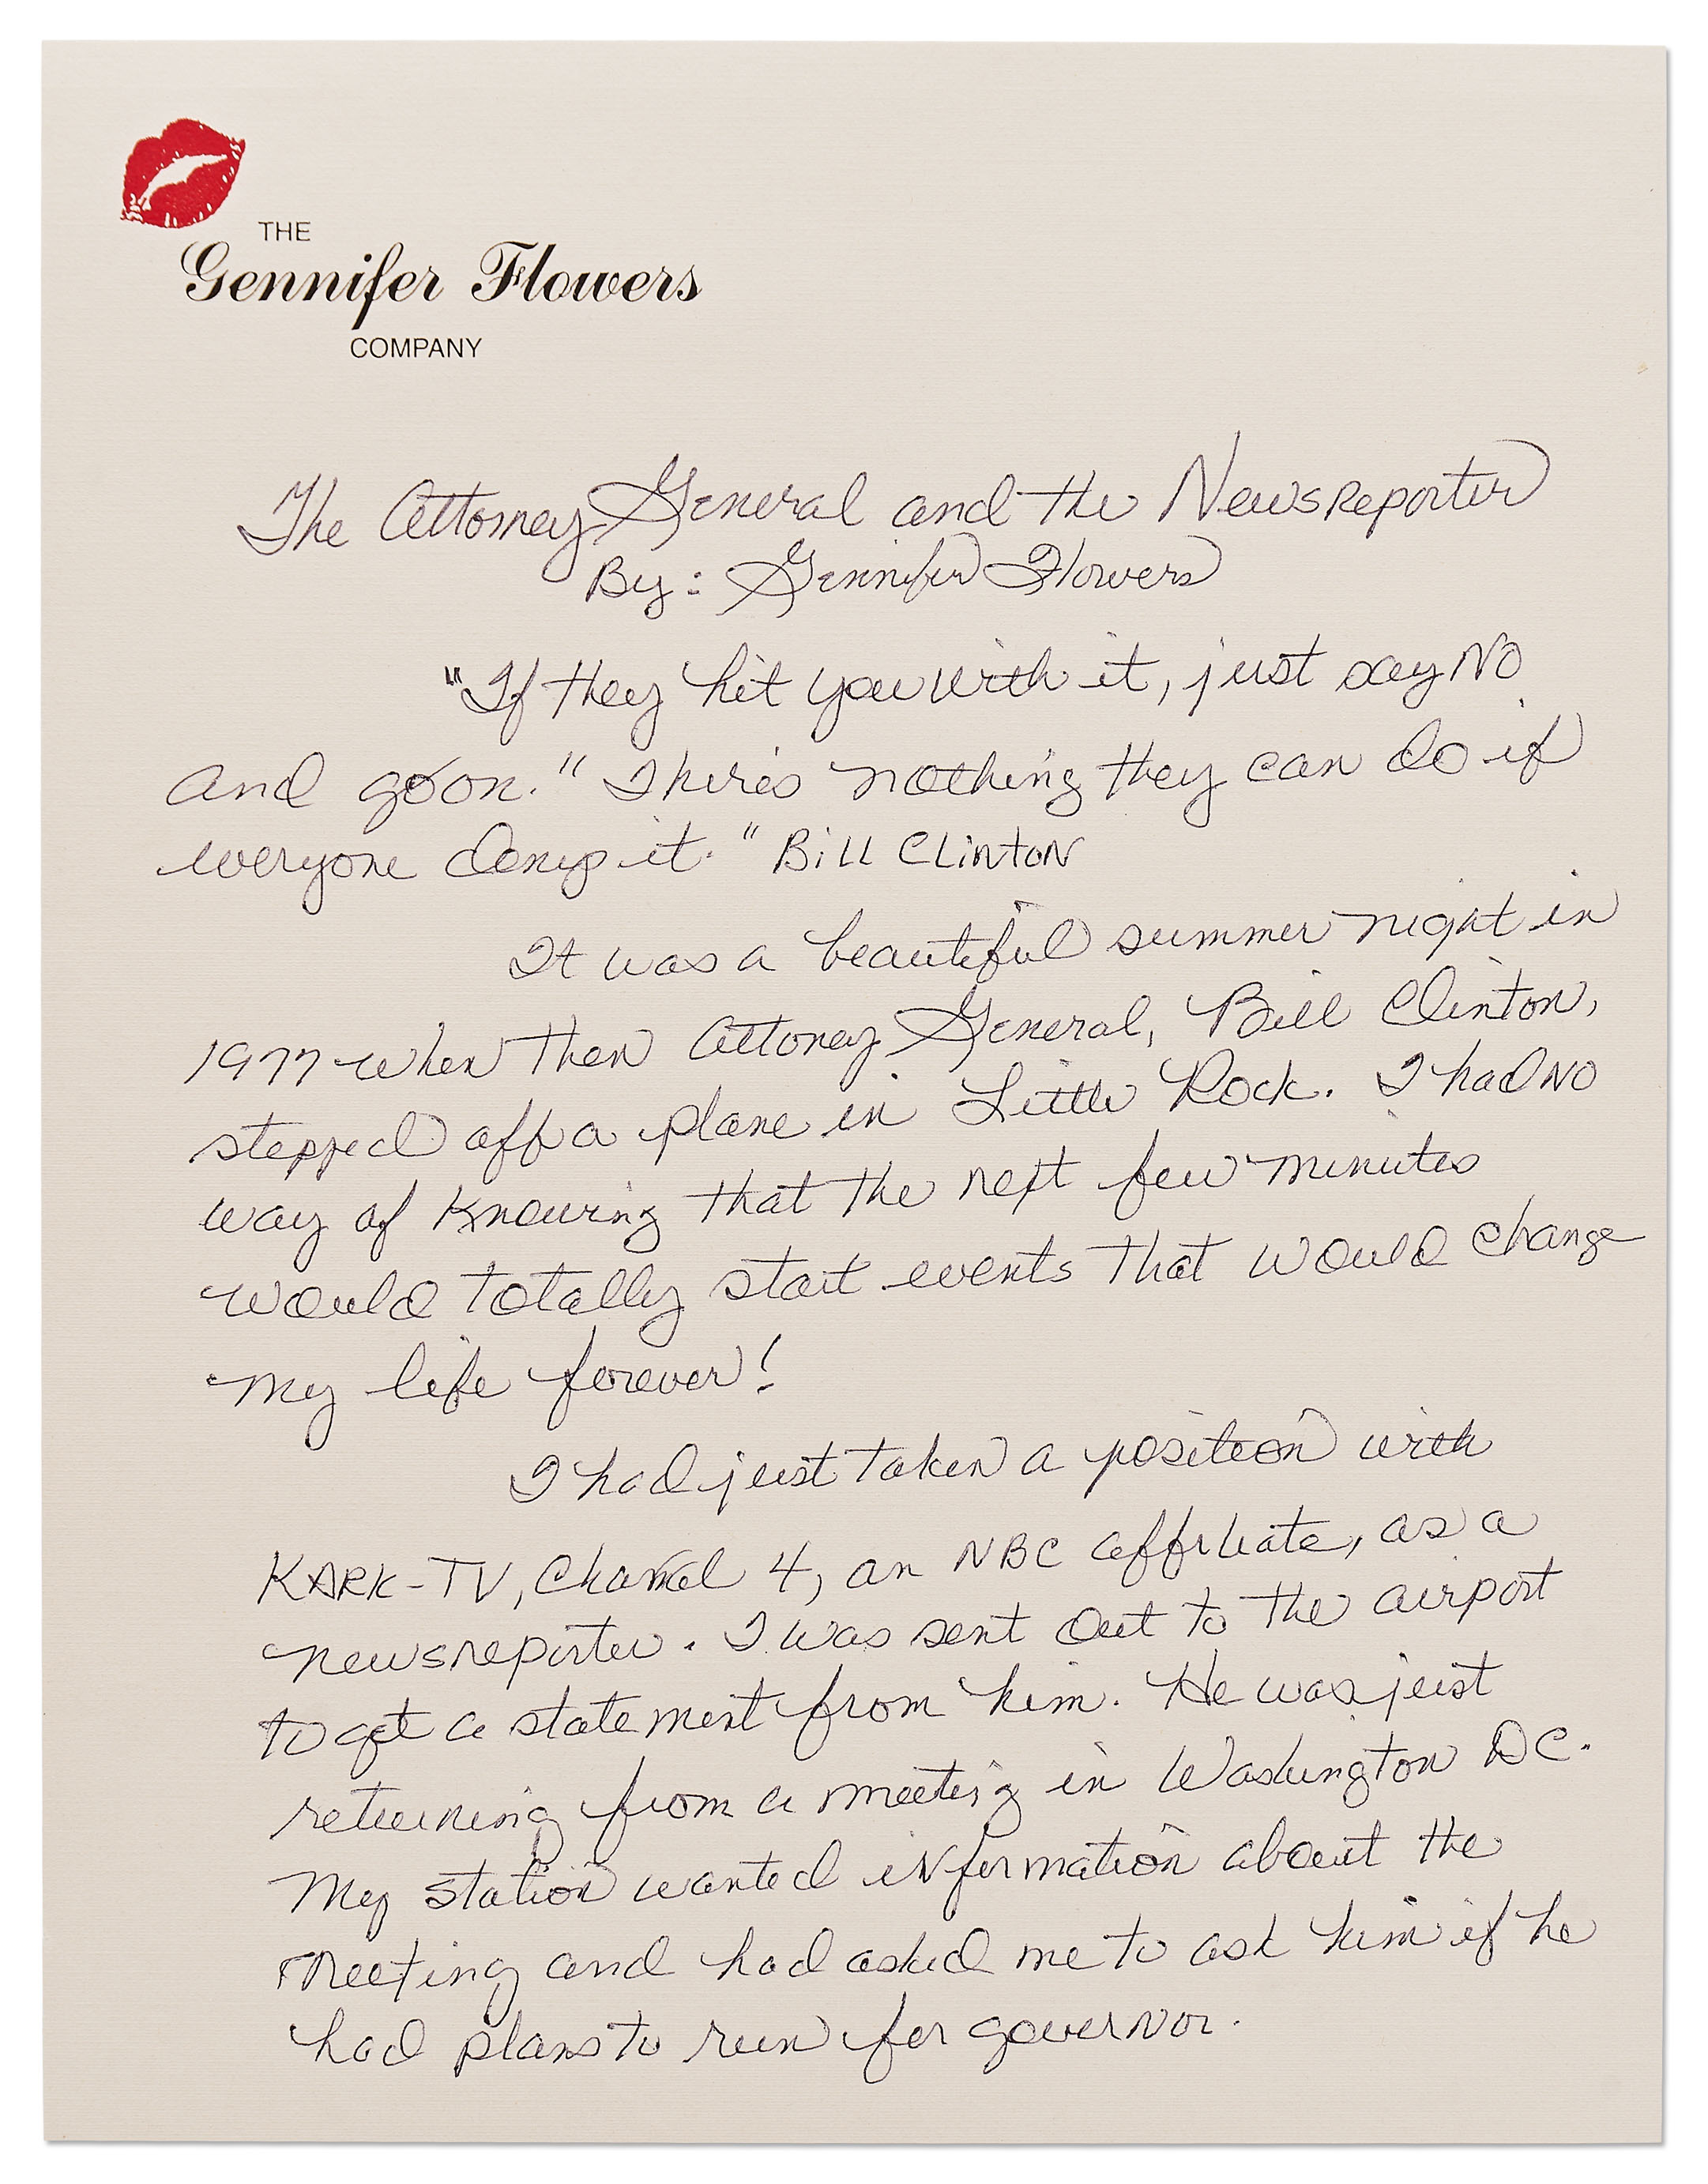 THE
Gennifer Flowers
COMPANY
The Attorney General and the Newsreporter
By: Gennifer Flowers
"If they hit you with it, just say No
and go on." There's nothing they can do if
everyone denys it." Bill Clinton
It was a beautiful summer night in
1977 when then Attoney General, Bill Clinton,
stepped off a plane in Little Rock. I had No
way of knowing that the next few minutes
would totally start events that would change
my life forever!
I had just taken a position with
KARK-TV, Channel 4, an NBC affiliate, as a
newsreporter. I was sent out to the airport
to get a statement from him. He was just
returning from a meeting in Washington DC.
My station wanted information about the
meeting and had asked me to ask him if he
had plans to run for governor.